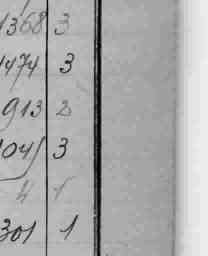 1368 3
1474 3
913 2
1045 3
4 1
301 1